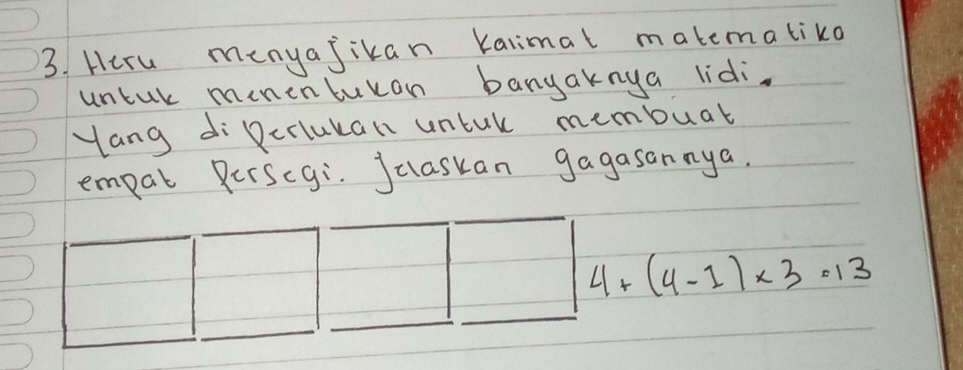 3. Heru menyajikan kalimat matematika
untuk menentukan banyaknya lidi.
Yang diperlukan untuk membuat
empat Persegi. Jelaskan gagasannya.
4+(4-1)×3=13